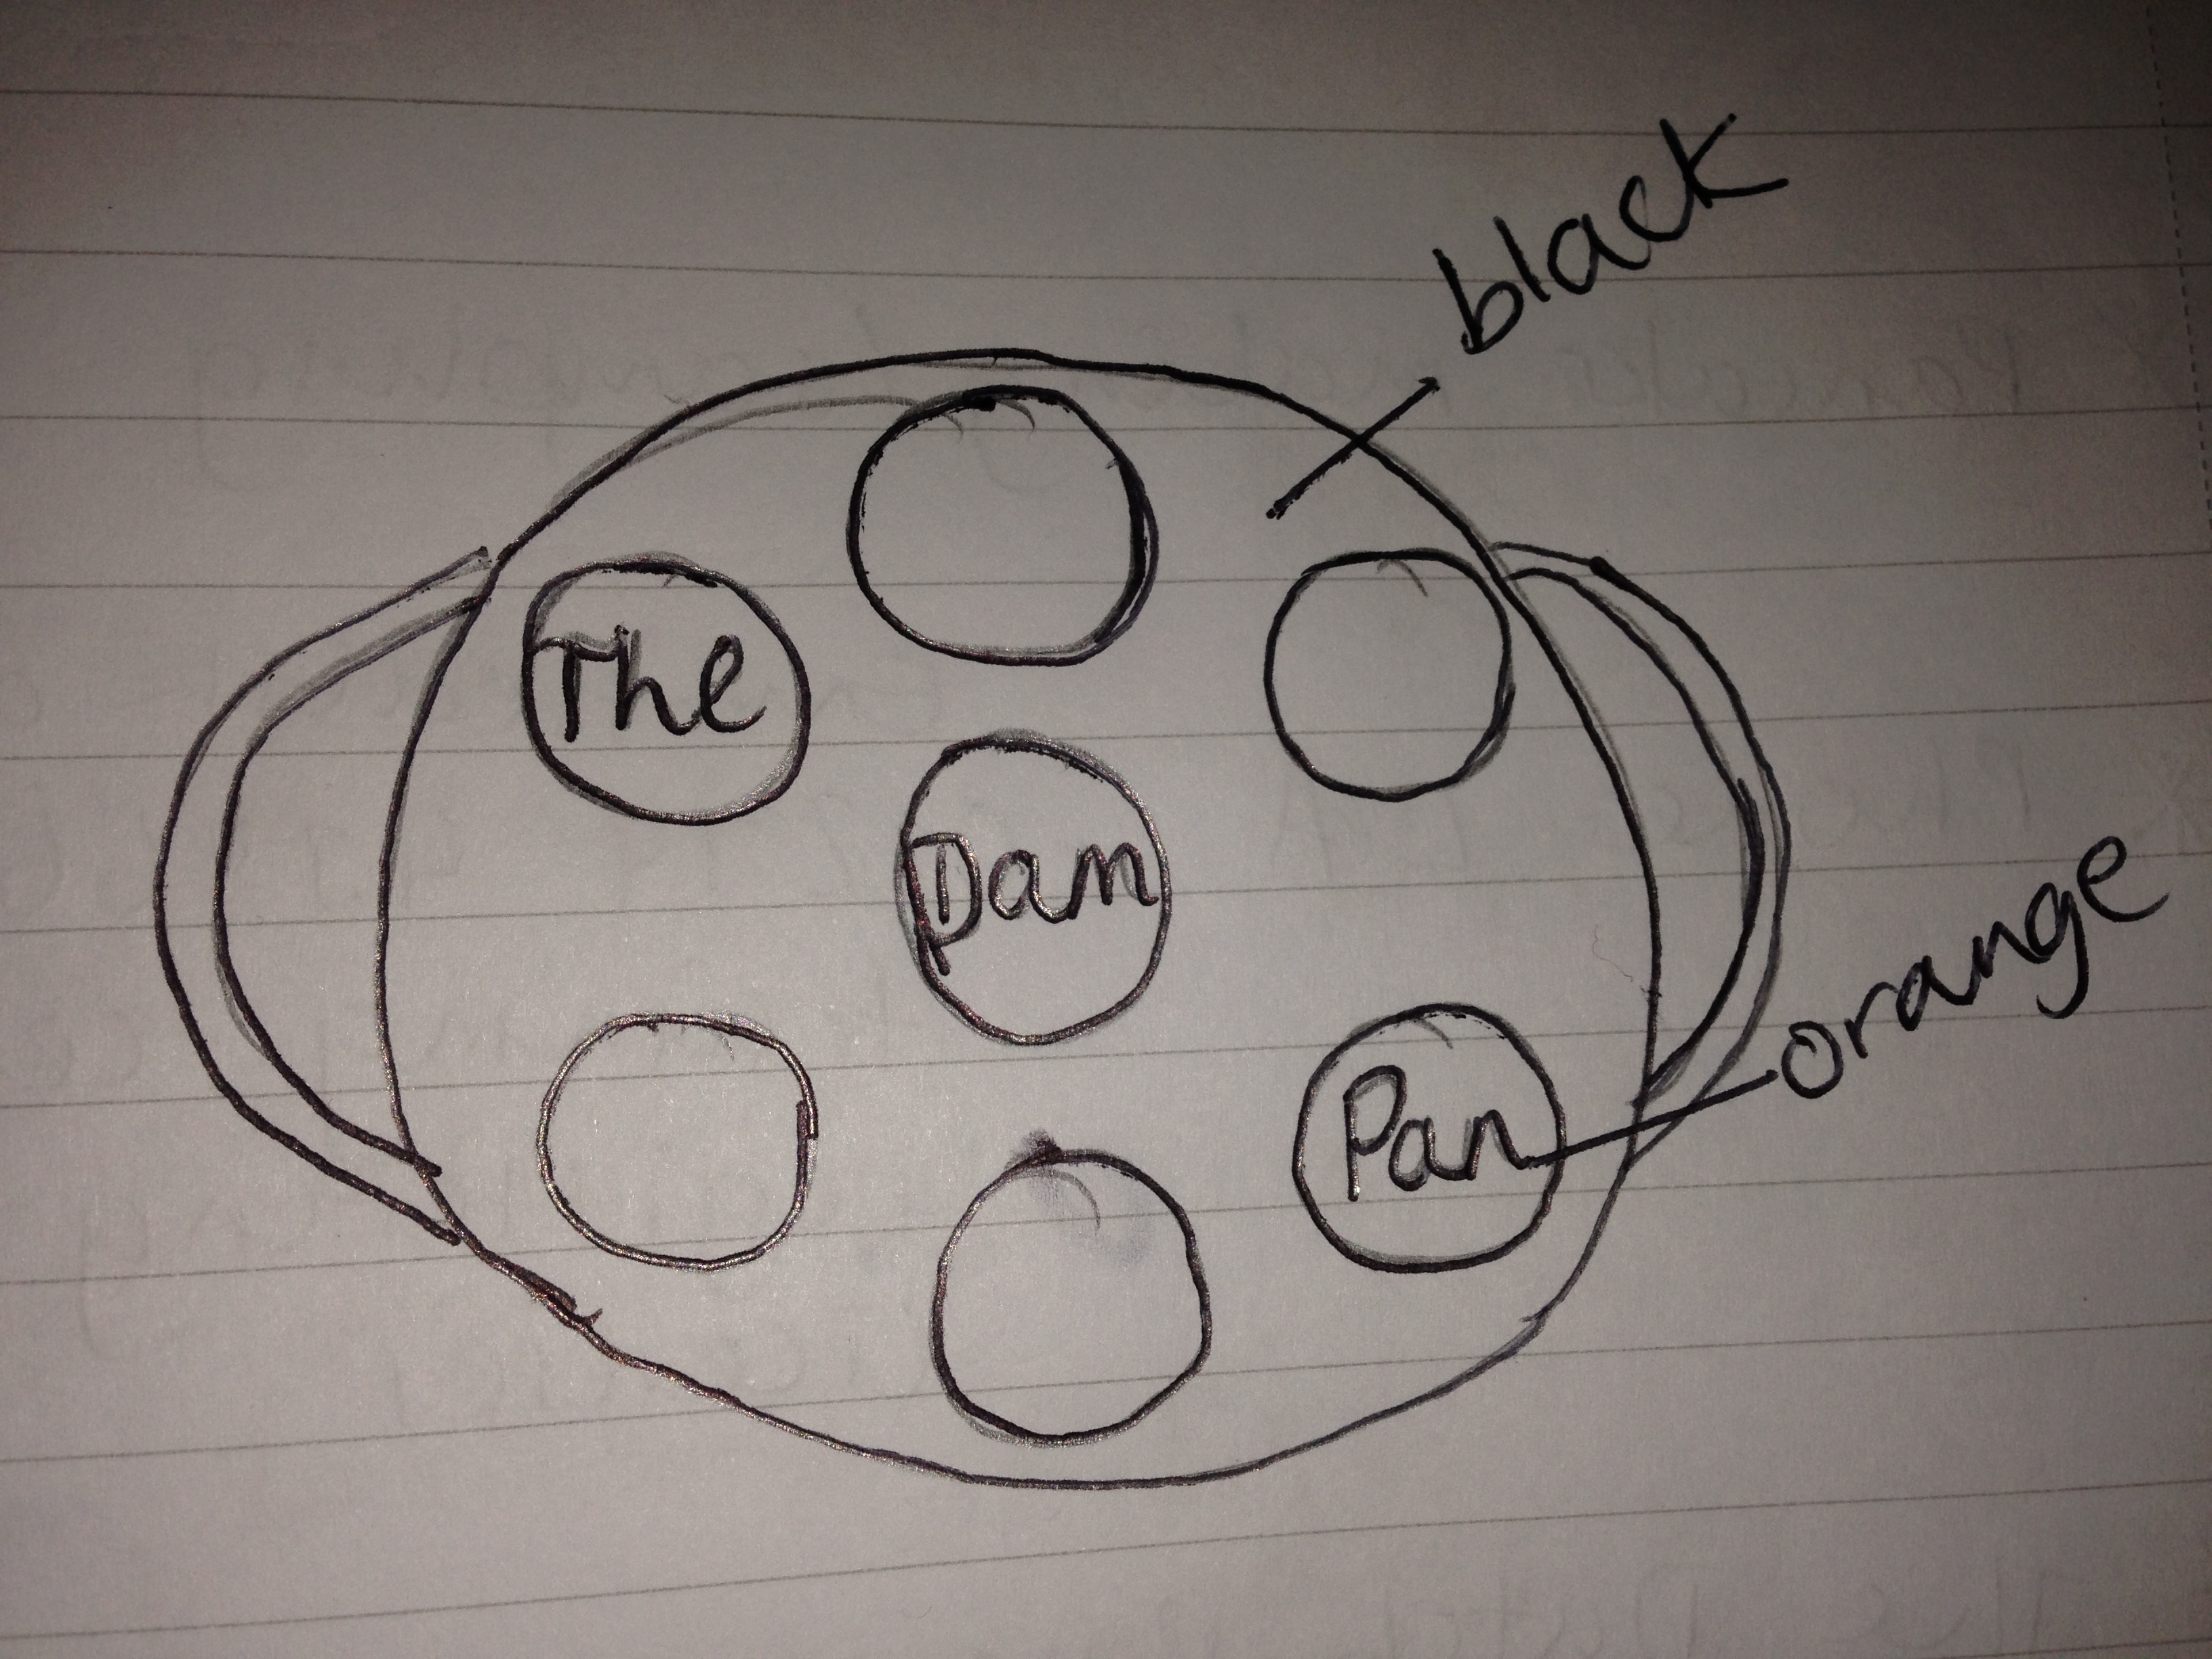 black
The
Dam
Pan
orange